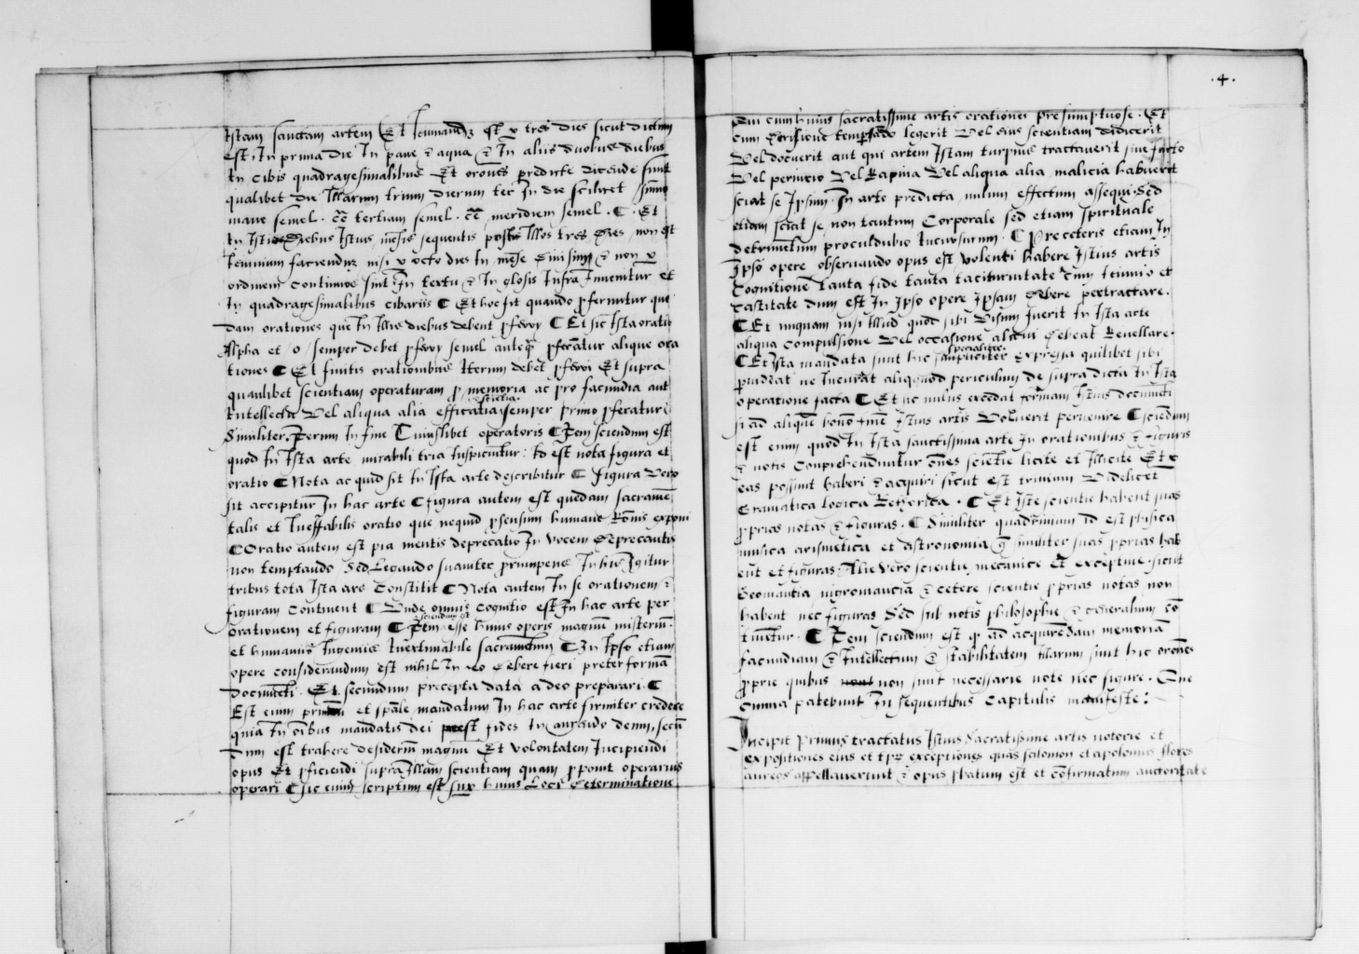 Istam sanctam artem Et Ieiunandum est per tres dies sicut dictum
est In prima die In pane & aqua & In aliis duobus diebus
In cibis quadragesimalibus Et orones predicte dicende sunt
qualibet die Illarum trium dierum sic In die scilicet summo
mane semel. circa tertiam semel. circa meridiem semel. Et
In Istis diebus Istius mensis sequentis post Illos tres dies non est
Ieiunium faciendum nisi octo dies In mense & non
ordinem continuos sint In textu & In glosis Infra Invenitur et
In quadragesimalibus cibariis Et hoc fit quando proferuntur que
dam orationes que In Illis diebus debent proferri Et sic Ista oratio
Alpha et o semper debet proferri semel antequam proferatur alique ora
tiones Et finitis orationibus Iterum debet proferri Et supra
quamlibet scientiam operaturam pro memoria ac pro facundia aut
Intellectu Vel aliqua alia efficatia semper primo proferatur
Similiter Iterum In fine Cuiuslibet operatoris Item sciendum est
quod In Ista arte mirabili tria Inspiciuntur: Id est nota figura et
oratio Nota ac quid sit In Ista arte describitur figura Vero
sit accipitur In hac arte figura autem est quedam sacramen
talis et Ineffabilis oratio que nequid per sensum humane Ronis exponi
Oratio autem est pia mentis deprecatio In Vocem deprecantis
non temptando Sed Legendo suaviter prumpens In his Igitur
tribus tota Ista ars Constitit Nota autem In se orationem &
figuram Continent Unde omnis Cognitio est In hac arte per
sciendum est
orationem et figuram Item esse huius operis magnum misterium
et humanis Ingeniis Inextimabile sacramentum In Ipso etiam
opere considerandum est nihil In eo debere fieri preter formam
documenti. Et secundum precepta data a deo preparari.
Est enim et spale mandatum In hac arte firmiter credere
quia In oibus mandatis dei prest fides In aurendo demum, secun
dum est trahere desiderium magnum Et Volontatem Incipiendi
opus Et perficiendi supra Illam scientiam quam proponit operarius
operari sic enim scriptum est super huius Loci determinatione
.4.
Qui cum huius sacratissime artis orationes presumptuose. Et
cum legerit Vel eius scientiam didicerit
Vel docuerit aut qui artem Istam turpius tractaverit sive furto
Vel periurio Vel Rapina Vel aliqua alia malicia habuerit
sciat se Ipsum In arte predicta nullum effectum assequi. Sed
etiam sciat se non tantum Corporale sed etiam spirituale
detrimentum proculdubio Incursurum. Pre ceteris etiam In
Ipso opere observando opus est Volenti habere Istius artis
Cognitionem tanta fide tanta taciturnitate cum Ieiunio et
castitate dum est In Ipso opere Ipsam debere pertractare.
Et nunquam nisi Illud quod sibi Visum fuerit In Ista arte
aliqua compulsione Vel occasione alicui debeat Revellare.
specialiter
Et Ista mandata sunt hic ampliciter expressa quilibet sibi
provideat ne Incurrat aliquod periculum de supradicta In Ista
operatione facta Et ut nullus excedat formam Istius documenti
si ad aliquem bonum finem Istius artis Voluerit pervenire Sciendum
est enim quod In Ista sanctissima arte In orationibus & figuris
& notis Comprehenduntur omnes scientie licite et Illicite Et
eas possunt haberi & acquiri sicut est trivium Videlicet
Gramatica Logica Rethorica. Et Iste scientie habent suas
proprias notas & figuras. Similiter quadrivium Id est phisica
musica arismetica et astronomia que similiter suas proprias hab
ent et figuras Alie Vero scientie mecanice et exceptive. sicut
Geomantia nigromantia & cetere scientie proprias notas non
habent nec figuras Sed sub notis philosophie & generalium con
tinentur. Item sciendum est quod ad acquirendam memoriam
facundiam & Intellectum & stabilitatem Illarum sunt hic orones
proprie quibus non sunt necessarie note nec figure. Que
omnia patebunt In sequentibus Capitulis manifeste:
Incipit Primus tractatus Istius Sacratissime artis notorie et
expositiones eius et exceptiones quas salomon et apolonius flores
aureos appellaverunt & opus probatum est et confirmatum auctoritate